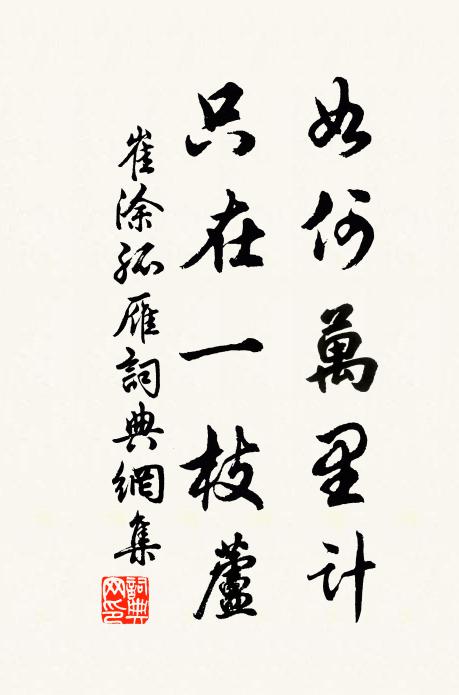 如何萬里計
只在一枝蘆
崔涂孤雁詞典網集
詞典网印